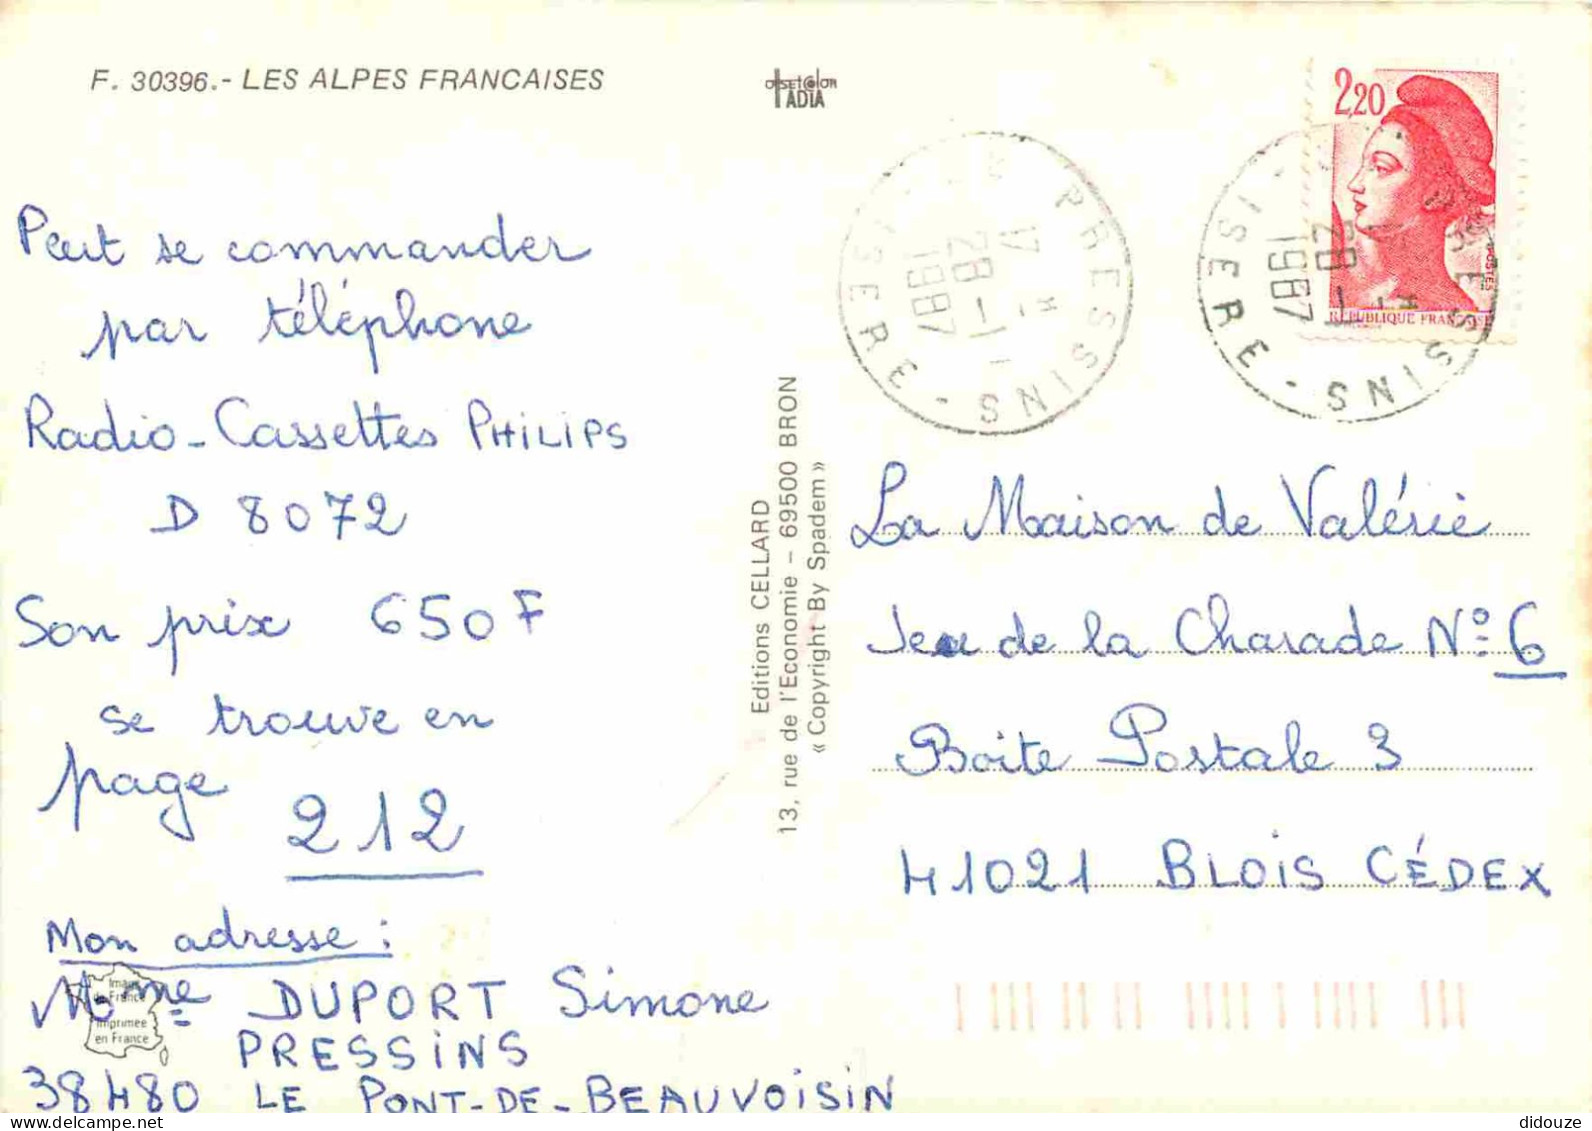 F. 30396.- LES ALPES FRANCAISES
offsetcolor
IADIA
2,20
POSTES
REPUBLIQUE FRANCAISE
PRESSINS
ISERE
17 H
28-1-
1987
PRESSINS
ISERE
28-1-
1987
Peut se commander
par téléphone
Radio-Cassettes PHILIPS
D 8072
Son prix 650 F
se trouve en
page 212
Mon adresse :
Mme DUPORT Simone
PRESSINS
38480 LE PONT-DE-BEAUVOISIN
Image
de France
Imprimée
en France
Editions CELLARD
13, rue de l'Economie - 69500 BRON
« Copyright By Spadem »
La Maison de Valérie
Jeu de la Charade N° 6
Boite Postale 3
41021 BLOIS CÉDEX
didouze